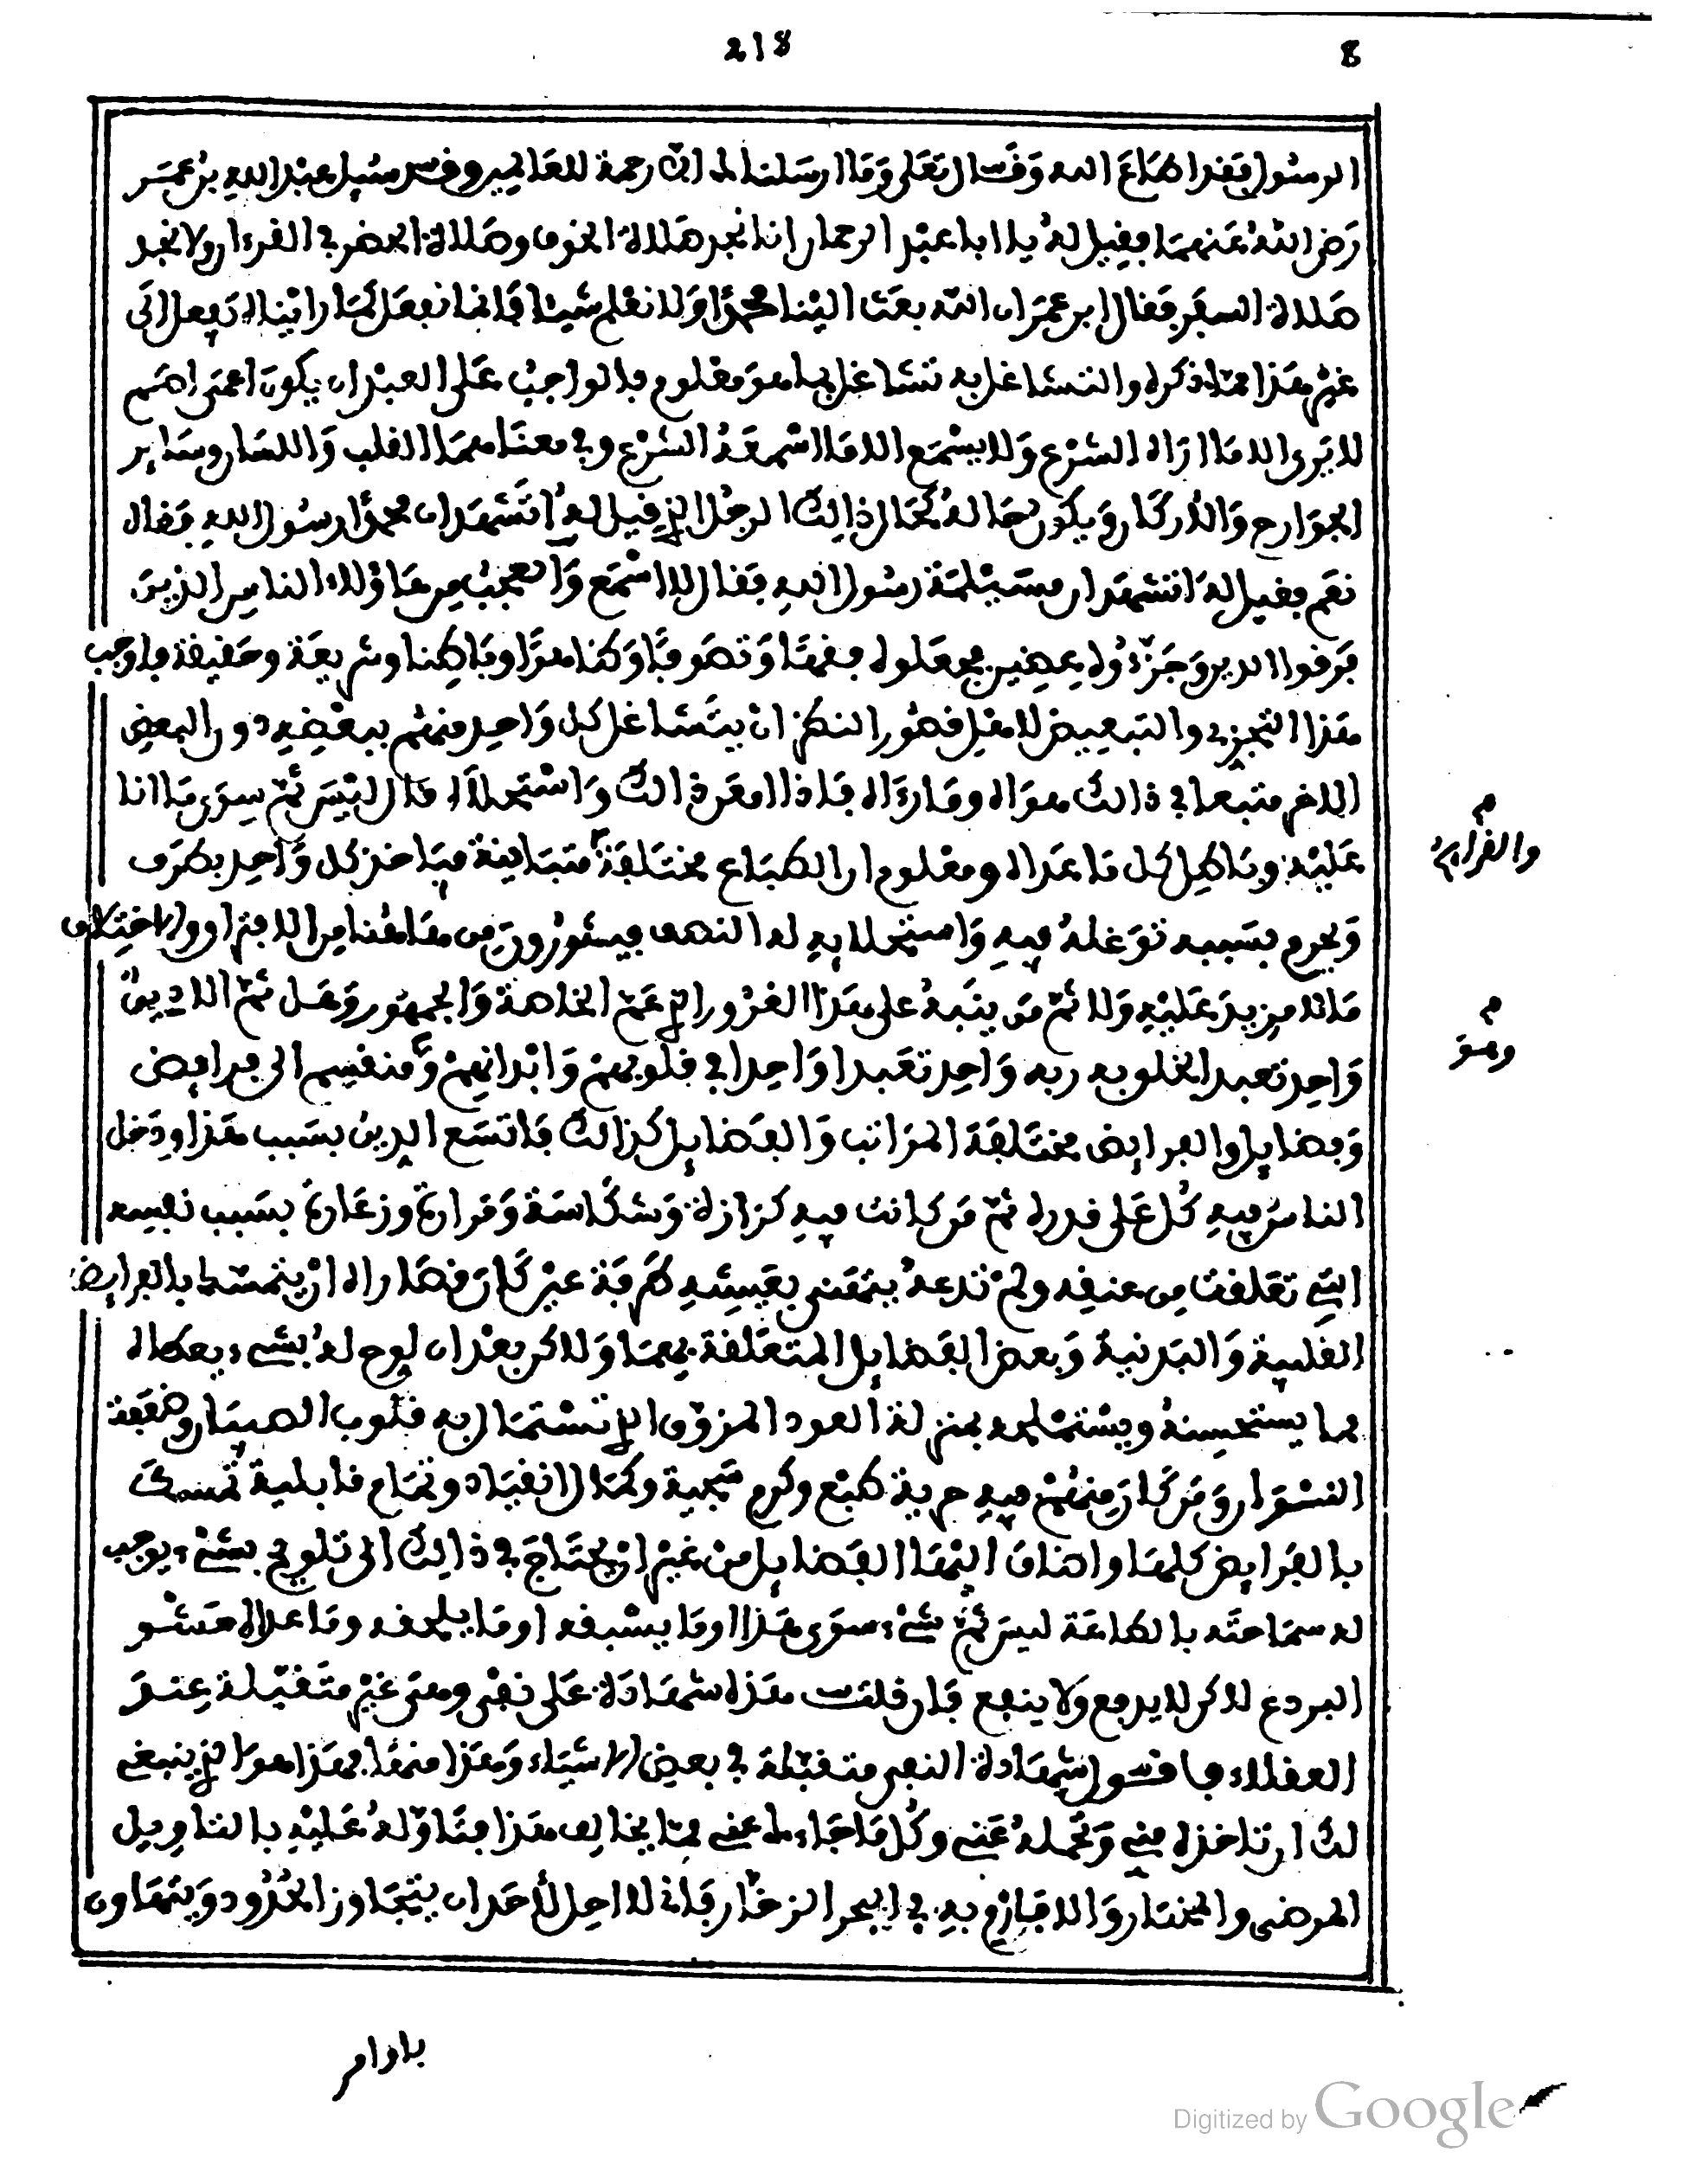 218
8
الرسول فقد اطاع الله وقال تعلى وما ارسلناك الا رحمة للعالمين وقد سيل عبد الله بن عمر
رضي الله عنهما فقيل له يا ابا عبد الرحمان انا نجد صلاة الخوف وصلاة الحضر في القرءان ولا نجد
صلاة السفر فقال ابن عمر ان الله بعث الينا محمدا ولا نعلم شيئا فانما نفعل كما رايناه يفعل الى
غير هذا مما ذكره والتشاغل به تشاغل بما هو معلوم فالواجب على العبد ان يكون اعمى اصم
لا يرى الا ما اراه الشرع ولا يسمع الا ما اسمعه الشرع وفي معناهما القلب واللسان وساير
الجوارح والاركان ويكون حاله كحال ذالك الرجل الذي قيل له اتشهد ان محمدا رسول الله فقال
نعم فقيل له اتشهد ان مسيلمة رسول الله فقال لا اسمع والعجب من هاؤلاء الناس الذين
فرقوا الدين وجزءوه عضين فجعلوه فقها وتصوفا وظاهرا وباطنا وشريعة وحقيقة فاوجب
هذا التجزي والتبعيض لاهل قصور النظر ان يتشاغل كل واحد منهم ببعضه دون البعض
الاخر متبعا في ذالك هواه وما رءاه فاذا امعن في ذالك واستحلاه قال ليس ثم سوى ما انا
عليه وباطل كل ما عداه ومعلوم ان الطباع مختلفة متباينة فياخذ كل واحد بطرف
والقراين
ويحرم بسببه توغله فيه واستحلايه له النصف فيستورون من هاهنا من الافتراق والاختلاف
ما لا مزيد عليه ولا ثم من ينبه على هذا الغرور الذي عم الخاصة والجمهور وهل ثم الا دين
وهو
واحد تعبد الخلق به ربه واحد تعبدا واحدا في قلوبهم وابدانهم ومنقسم الى فرايض
وفضايل والفرايض مختلفة المراتب والفضايل كذالك فاتسع الدين بسبب هذا ودخل
الناس فيه كل على قدره ثم من كانت فيه كزازة وشكاسة ومرارة وزعارة بسبب نفسه
التي تعلقت من عنقه ولم تدعه يتهنى بعيشه طرفة عين كان قصاراه ان يتمسك بالفرايض
القلبية والبدنية وبعض الفضايل المتعلقة بهما ولاكن بعد ان لوح له بشيء يعطاه
مما يستحسنه ويستملحه بمنزلة العود المزوق الذي تستمال به قلوب الصبيان وضعفة
النسوان ومن كان منهم فيه حرية طبع وكرم سجية وكمال انقياد وتمام قابلية تمسك
بالفرايض كلها واضاف اليها الفضايل من غير ان يحتاج في ذالك الى تلويح بشيء يوجب
له سماحته بالطاعة ليس ثم شيء سوى هذا او ما يسبقه او ما يلحقه وما عداه حشو
البردع لاكن لا يرفع ولا ينفع فان قلت هذه شهادة على نفي وهي غير متقبلة عند
العقلاء فاقول شهادة النفي متقبلة في بعض الاشياء وهذا منها فهذا هو الذي ينبغي
لك ان تاخذه مني وتحمله عني وكل ما جاءك عني مما يخالف هذا فتاوله عليه بالتاويل
المرضي والمختار والا فارم به في البحر الزخار فاني لا احل لاحد ان يتجاوز الحدود ويتهاون
باوامر
Digitized by Google